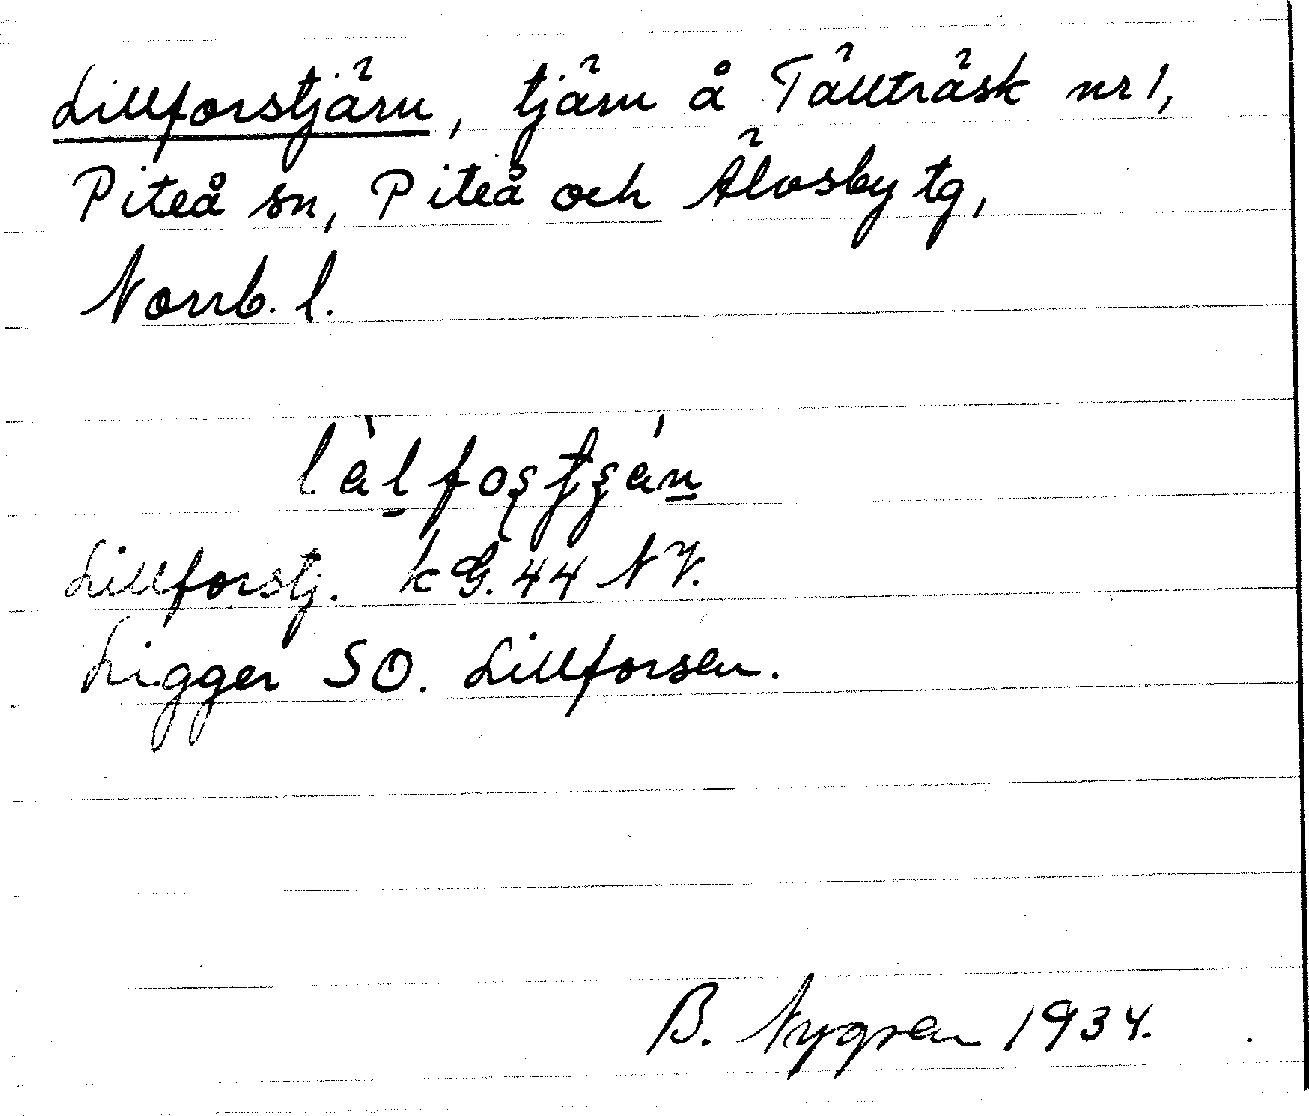 Lillforstjärn, tjärn å Tällträsk nr 1,
Piteå sn, Piteå och Älvsby tg,
Norrb. l.
Lillforstj. kG. 44 NV.
Ligger SO. Lillforsen.
B. Nygren 1934.